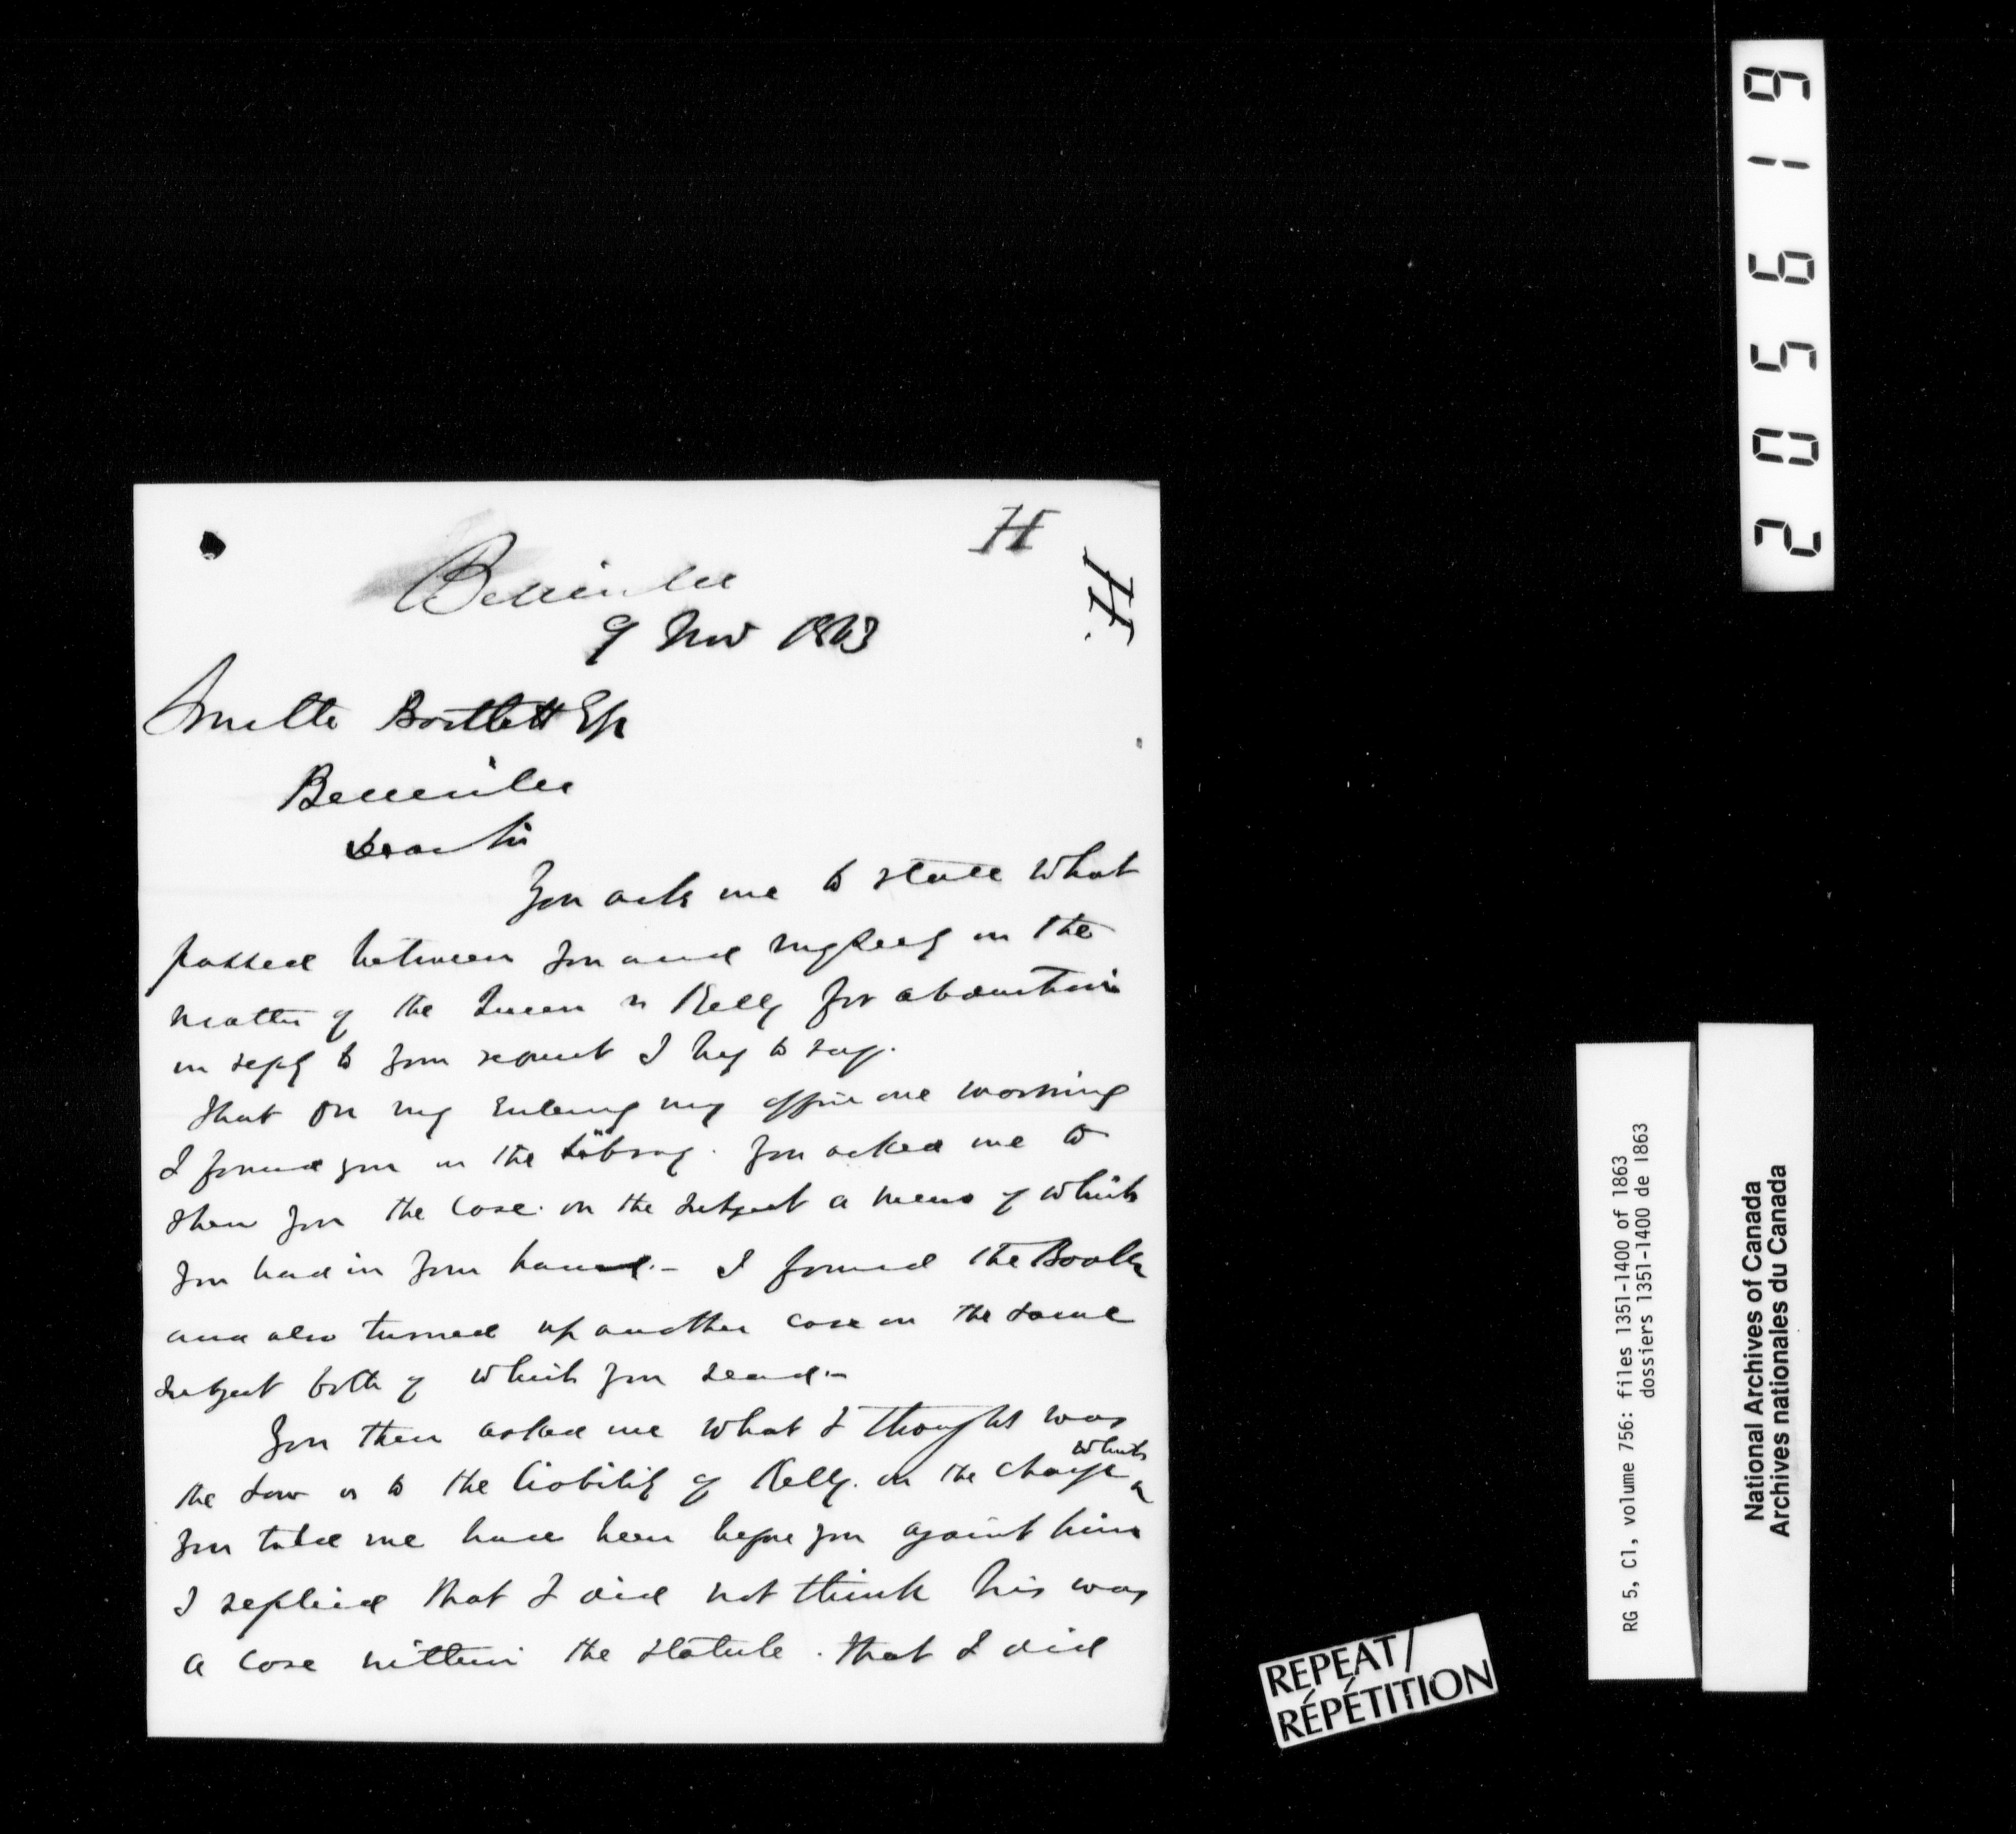 H
H.
Belleville
9 Nov 1863
Smith Bartlett Esqr
Belleville
Dear Sir
You ask me to state what
passed between you and myself in the
matter of the Queen vs Kelly for abduction
in reply to your request I beg to say.
That on my entering my office one morning
I found you in the Library. You asked me to
show you the case. on the subject a memo of which
you had in your hand.— I found the Book
and also turned up another case on the same
subject both of which you read.—
You then asked me what I thought was
the Law as to the liability of Kelly. on the charge which
you told me have been before you against him
I replied that I did not think his was
a case within the statute. that I did
205619
RG 5, C1, volume 756: files 1351-1400 of 1863
dossiers 1351-1400 de 1863
National Archives of Canada
Archives nationales du Canada
REPEAT/
RÉPÉTITION